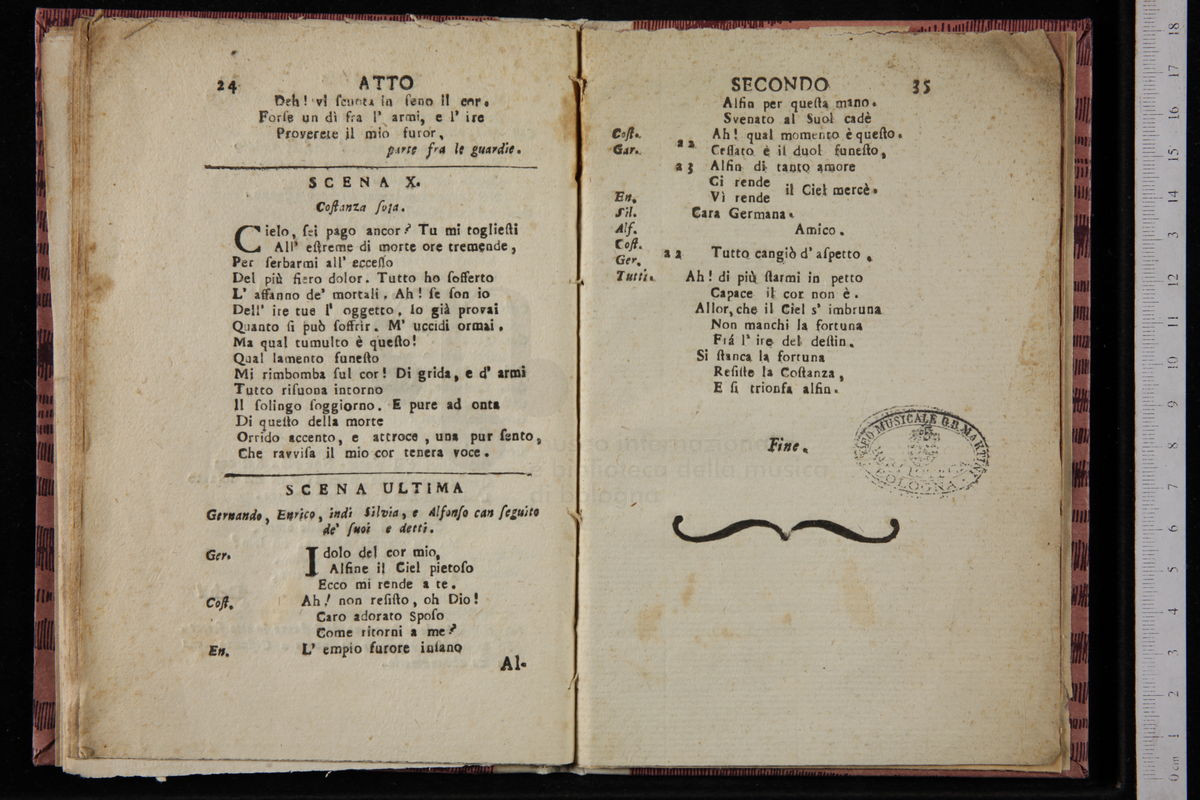 24 ATTO
Deh! vi scuota in seno il cor.
Forse un dì fra l' armi, e l' ire
Proverete il mio furor,
parte fra le guardie.
SCENA X.
Costanza sola.
Cielo, sei pago ancor? Tu mi togliesti
All' estreme di morte ore tremende,
Per serbarmi all' eccesso
Del più fiero dolor. Tutto ho sofferto
L' affanno de' mortali. Ah! se son io
Dell' ire tue l' oggetto, Io già provai
Quanto si può soffrir. M' uccidi ormai.
Ma qual tumulto è questo!
Qual lamento funesto
Mi rimbomba sul cor! Di grida, e d' armi
Tutto risuona intorno
Il solingo soggiorno. E pure ad onta
Di questo della morte
Orrido accento, e attroce, una pur sento,
Che ravvisa il mio cor tenera voce.
SCENA ULTIMA
Gernando, Enrico, indi Silvia, e Alfonso can seguito
de' suoi e detti.
Ger. Idolo del cor mio,
Alfine il Ciel pietoso
Ecco mi rende a te.
Cost. Ah! non resisto, oh Dio!
Caro adorato Sposo
Come ritorni a me?
En. L' empio furore insano
Al-
SECONDO 35
Alfin per questa mano.
Svenato al Suol cadè
Cost. Ah! qual momento è questo.
Gar. a 2 Cessato è il duol funesto,
a 3 Alfin di tanto amore
Ci rende
il Ciel mercè.
En. Vi rende
Sil. Cara Germana.
Alf. Amico.
Cost.
Ger. a 2 Tutto cangiò d' aspetto.
Tutti. Ah! di più starmi in petto
Capace il cor non è.
Allor, che il Ciel s' imbruna
Non manchi la fortuna
Frá l' ire del destin.
Si stanca la fortuna
Resiste la Costanza,
E si trionfa alfin.
Fine.
MUSICALE G.B. MARTINI
BOLOGNA
museo internazionale
e biblioteca della musica
di bologna
0 cm 1 2 3 4 5 6 7 8 9 10 11 12 13 14 15 16 17 18